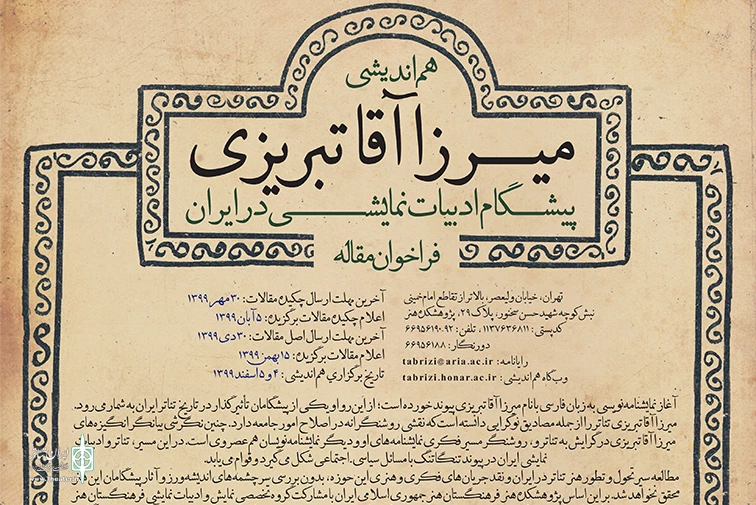 هم‌اندیشی
میرزا آقا تبریزی
پیشگام ادبیات نمایشی در ایران
فراخوان مقاله
آخرین مهلت ارسال چکیده مقالات: ۳۰ مهر ۱۳۹۹
اعلام چکیده مقالات برگزیده: ۵ آبان ۱۳۹۹
آخرین مهلت ارسال اصل مقالات: ۳۰ دی ۱۳۹۹
اعلام مقالات برگزیده: ۱۵ بهمن ۱۳۹۹
تاریخ برگزاری هم‌اندیشی: ۴ و ۵ اسفند ۱۳۹۹
تهران، خیابان ولیعصر، بالاتر از تقاطع امام خمینی
نبش کوچه شهید حسن سخنور، پلاک ۲۹، پژوهشکده هنر
کدپستی: ۱۱۳۷۶۳۶۸۱۱، تلفن: ۹۲-۶۶۹۵۶۱۹۰
دورنگار: ۶۶۹۵۶۱۸۸
رایانامه: tabrizi@aria.ac.ir
وب‌گاه هم‌اندیشی: tabrizi.honar.ac.ir
آغاز نمایشنامه‌نویسی به زبان فارسی با نام میرزا آقا تبریزی پیوند خورده است؛ از این رو او یکی از پیشگامان تأثیرگذار در تاریخ تئاتر ایران به شمار می‌رود.
میرزا آقا تبریزی تئاتر را از جمله مصادیق نوگرایی دانسته است که نقشی روشنگرانه در اصلاح امور جامعه دارد. چنین نگرشی بیانگر انگیزه‌های
میرزا آقا تبریزی در گرایش به تئاتر و، روشنگر مسیر فکری نمایشنامه‌های او و دیگر نمایشنامه‌نویسان هم‌عصر وی است. در این مسیر، تئاتر و ادبیات
نمایشی ایران در پیوند تنگاتنگ با مسائل سیاسی، اجتماعی شکل می‌گیرد و قوام می‌یابد.
مطالعه سیر تحول و تطور هنر تئاتر در ایران و نقد جریان‌های فکری و هنری این حوزه، بدون بررسی سرچشمه‌های اندیشه‌ورز و آثار پیشگامان این
محقق نخواهد شد. بر این اساس پژوهشکده هنر فرهنگستان هنر جمهوری اسلامی ایران با مشارکت گروه تخصصی نمایش و ادبیات نمایشی فرهنگستان هنر